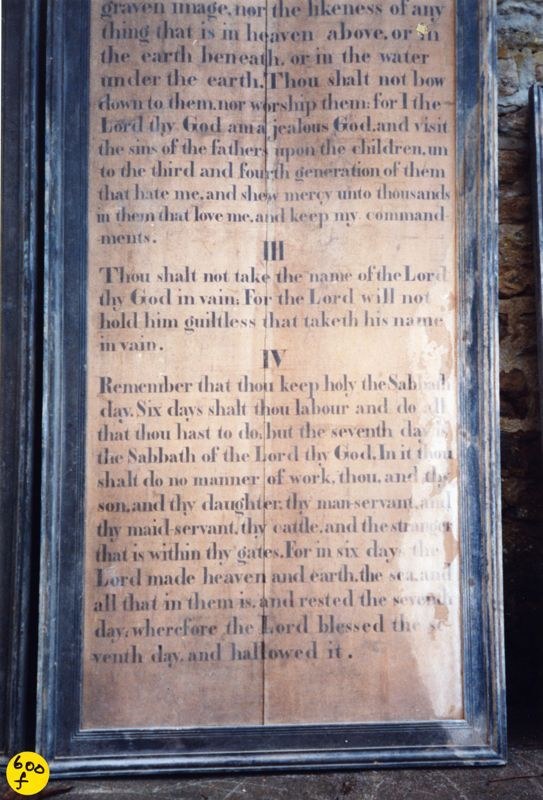 graven image, nor the likeness of any
thing that is in heaven above, or in
the earth beneath, or in the water
under the earth. Thou shalt not bow
down to them, nor worship them: for I the
Lord thy God am a jealous God, and visit
the sins of the fathers upon the children, un
to the third and fourth generation of them
that hate me, and shew mercy unto thousands
in them that love me, and keep my command-
-ments.
III
Thou shalt not take the name of the Lord
thy God in vain: For the Lord will not
hold him guiltless that taketh his name
in vain.
IV
Remember that thou keep holy the Sabbath
day. Six days shalt thou labour and do all
that thou hast to do, but the seventh day is
the Sabbath of the Lord thy God. In it thou
shalt do no manner of work, thou, and thy
son, and thy daughter, thy man-servant, and
thy maid-servant, thy cattle, and the stranger
that is within thy gates. For in six days the
Lord made heaven and earth, the sea, and
all that in them is, and rested the seventh
day, wherefore the Lord blessed the se
venth day, and hallowed it.
600
f